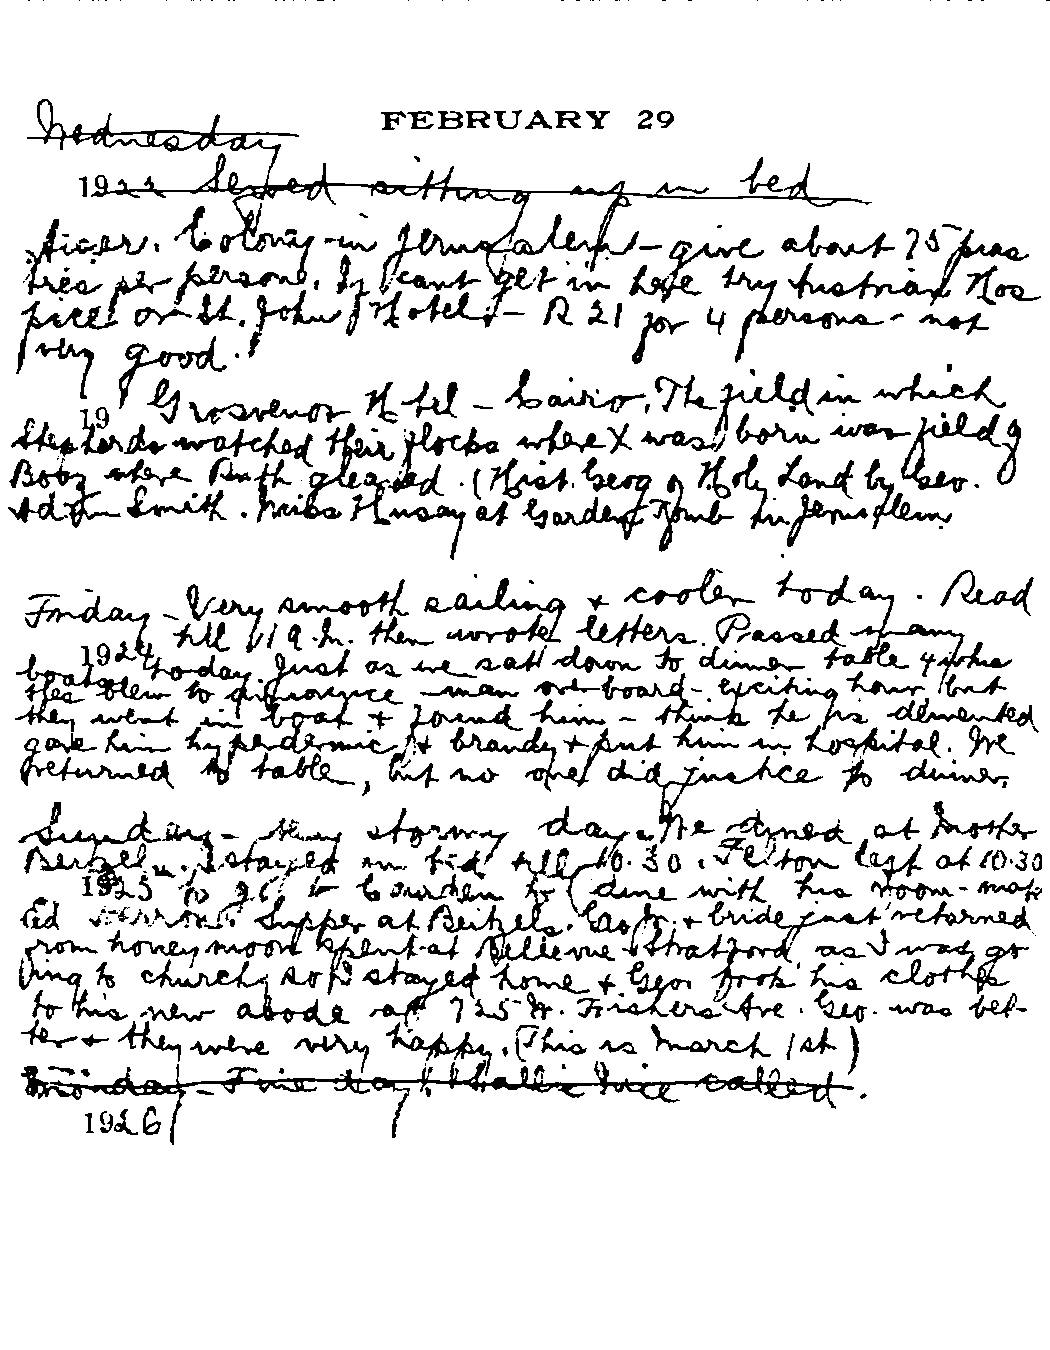 FEBRUARY 29
Wednesday
1922 Sewed sitting up in bed
Amer. Colony in Jerusalem - give about 75 pias
tres per person. If cant get in here try Austrian Hos
pice or St. John Hotel. - R 21 for 4 persons - not
very good.
19 Grosvenor Hotel - Cairo. The field in which
Shepherds watched their flocks where X was born was field of
Boaz where Ruth gleaned. (Hist. Geog of Holy Land by Geo.
Adam Smith. Miss Husay at Garden Tomb in Jerusalem
Friday - Very smooth sailing & cooler today. Read
1924 till 11 A.M. then wrote letters. Passed many
boats today. Just as we sat down to dinner table 4 whis
tles blew to announce - man overboard - exciting hour, but
they went in boat & found him - think he is demented
gave him hyperdermic & brandy & put him in hospital. We
returned to table, but no one did justice to dinner.
Sunday - Very stormy day. We dined at Mother
Beitzel's. I stayed in bed till 10.30. Felton left at 10.30
1925 to go to Camden to dine with his room-mate
Ed Supper at Beitzels. Geo. W. & bride just returned
from honeymoon spent at Bellevue-Stratford, as I was go
ing to church, so I stayed home & Geo. took his clothes
to his new abode at 725 W. Fishers Ave. Geo. was bet-
ter & they were very happy. (This is March 1st)
Monday - Fine day. Hallie Price called.
1926